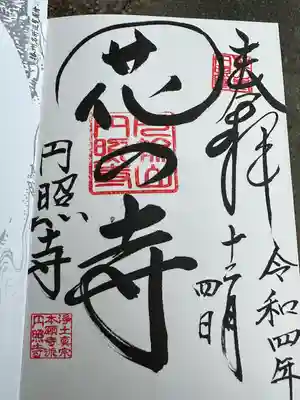 奉拝
令和四年
十二月
四日
花の寺
円照寺
浄土真宗
本願寺派
円照寺